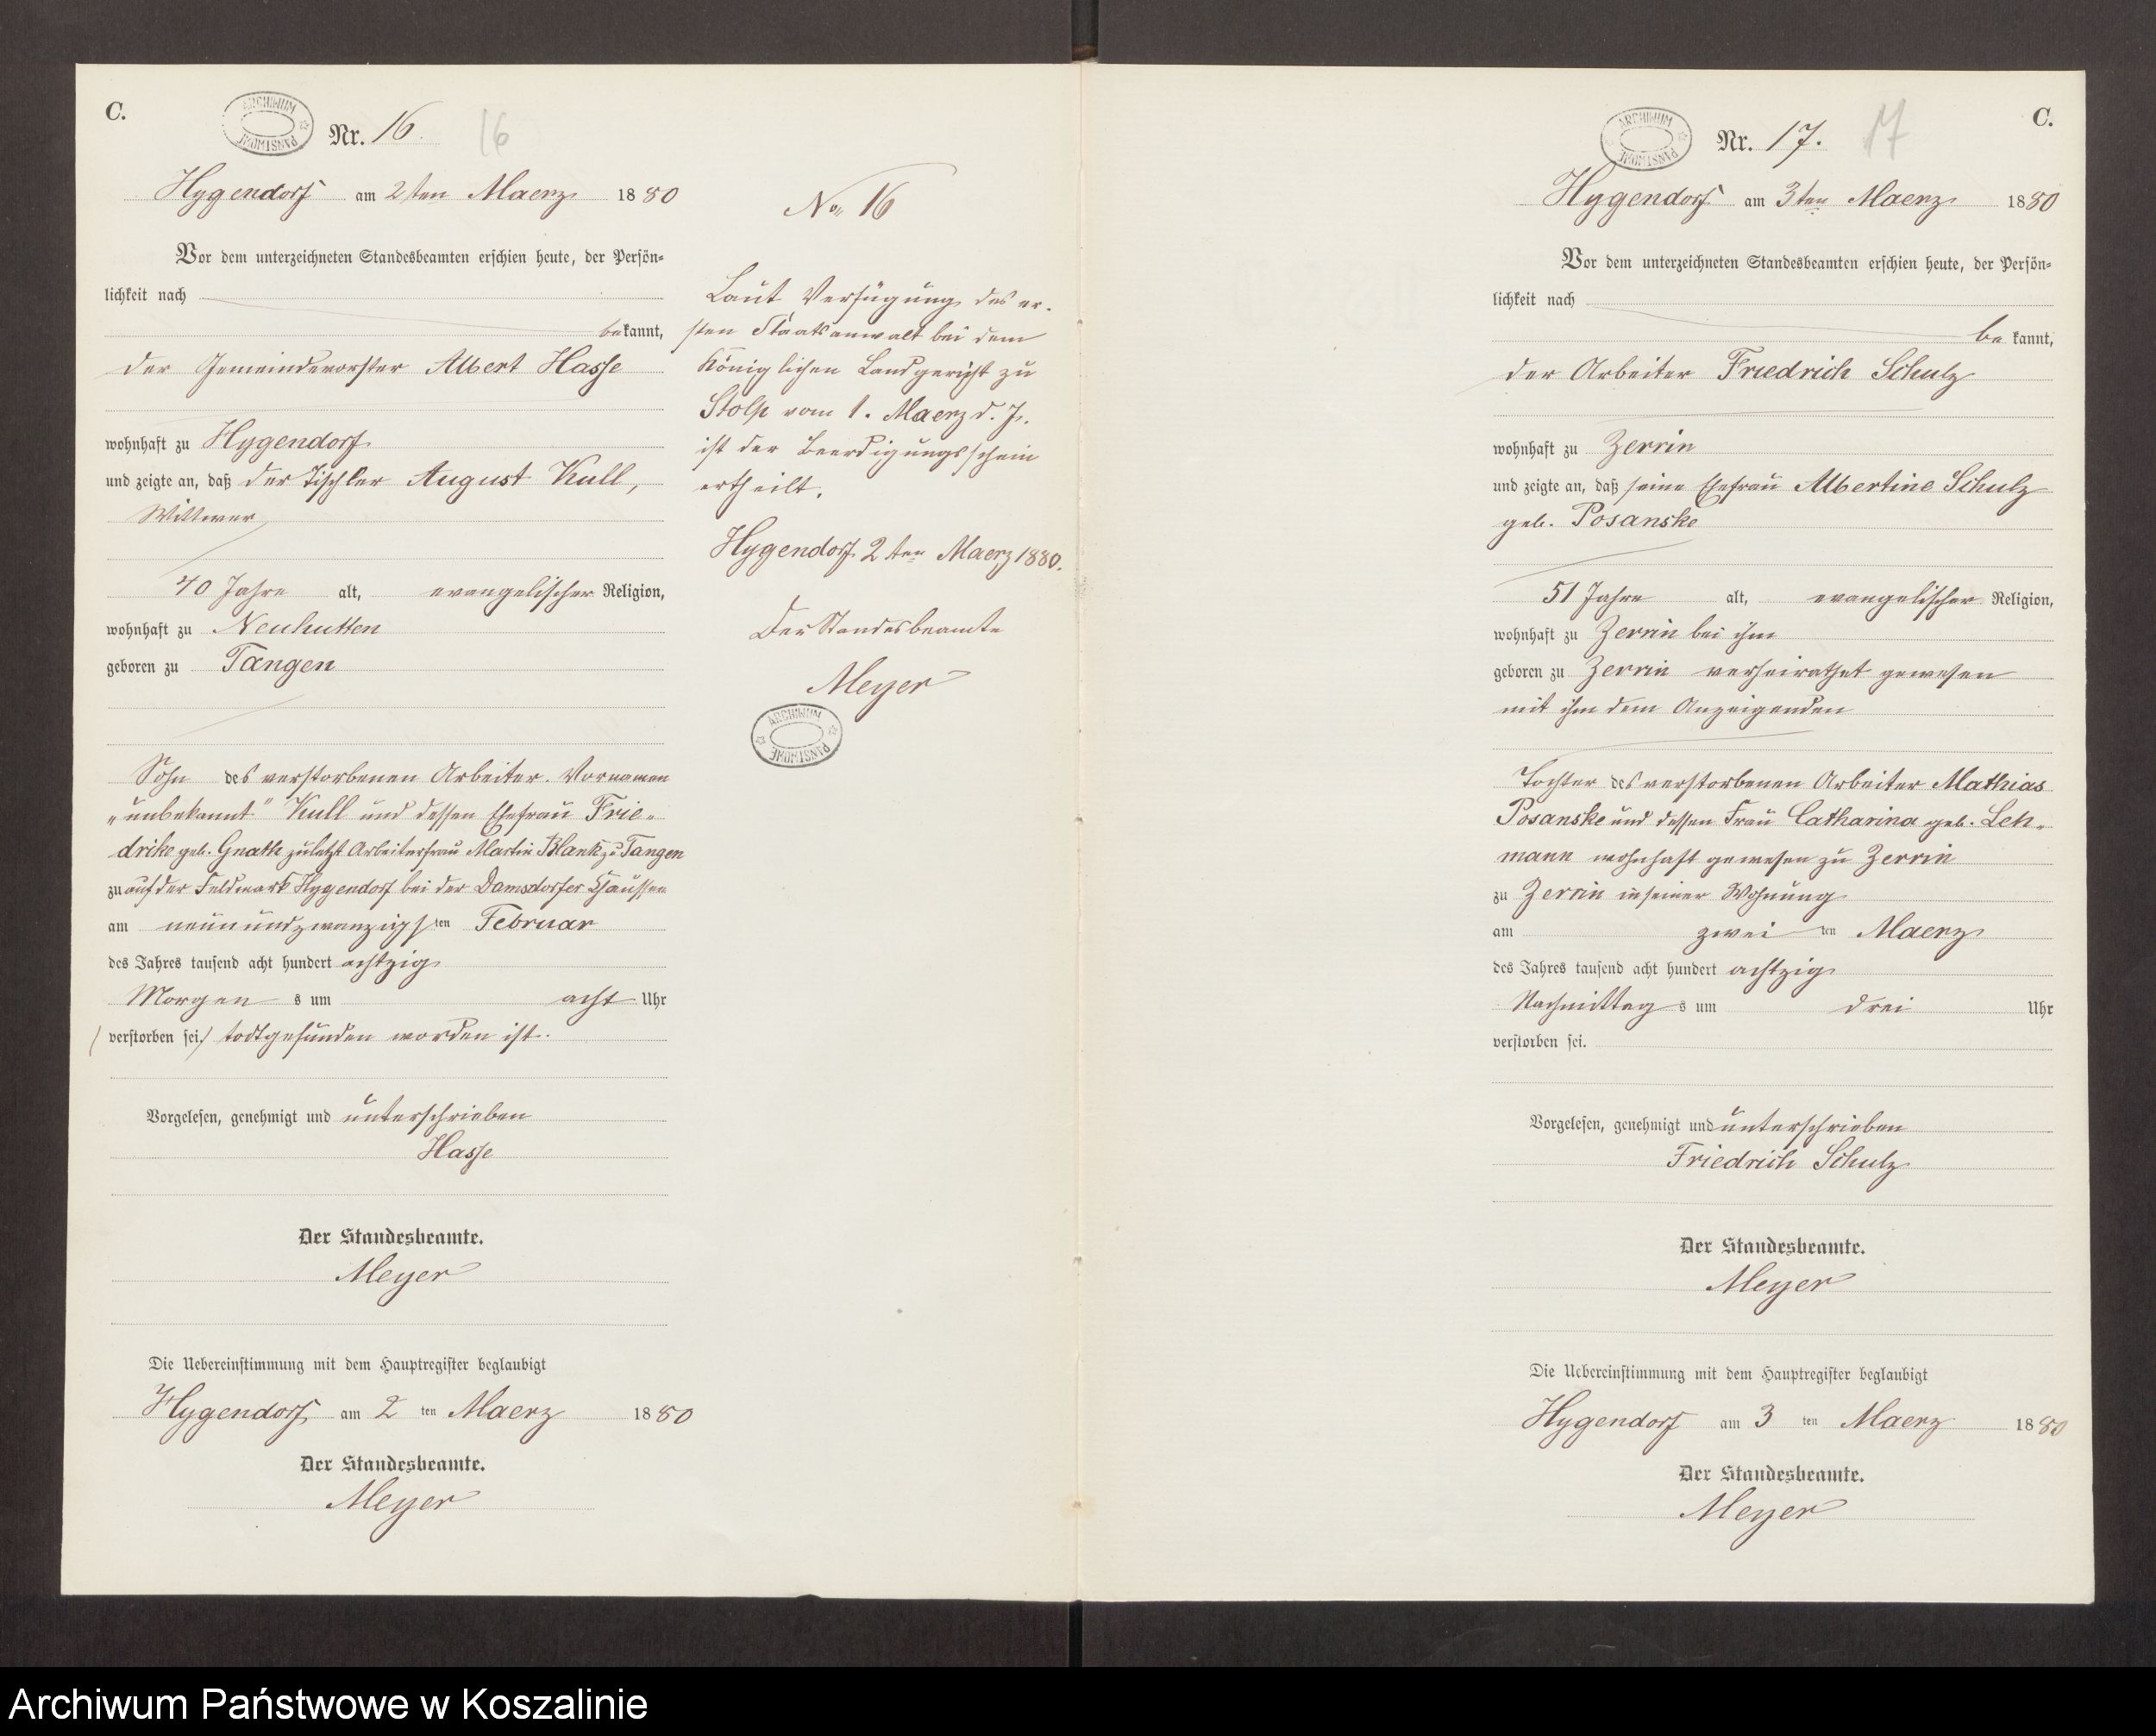 C.
ARCHIWUM PAŃSTWOWE
Nr. 16. 16
Hygendorf am 2ten Maerz 1880
Vor dem unterzeichneten Standesbeamten erschien heute, der Persön=
lichkeit nach
bekannt,
der Gemeindevorster Albert Hasse
wohnhaft zu Hygendorf
und zeigte an, daß der Tischler August Kull,
Wittwer
40 Jahre alt, evangelischer Religion,
wohnhaft zu Neuhutten
geboren zu Tangen
Sohn des verstorbenen Arbeiter. Vornamen
„unbekannt" Kull und dessen Ehefrau Frie=
drike geb. Gnath zuletzt Arbeiterfrau Martin Blank zu Tangen
zu auf der Feldmark Hygendorf bei der Damsdorfer Chaussee
am neunundzwanzigsten Februar
des Jahres tausend acht hundert achtzig
Morgens um acht Uhr
(verstorben sei) todtgefunden worden ist.
Vorgelesen, genehmigt und unterschrieben
Hasse
Der Standesbeamte.
Meyer
Die Uebereinstimmung mit dem Hauptregister beglaubigt
Hygendorf, am 2 ten Maerz 1880
Der Standesbeamte.
Meyer
No 16
Laut Verfügung des er=
sten Staatsanwalt bei dem
Königlichen Landgericht zu
Stolp vom 1. Maerz d. J.
ist der Beerdigungsschein
ertheilt.
Hygendorf 2ten Maerz 1880.
Der Standesbeamte
Meyer
ARCHIWUM PAŃSTWOWE
C.
ARCHIWUM PAŃSTWOWE
Nr. 17. 17
Hygendorf am 3ten Maerz 1880
Vor dem unterzeichneten Standesbeamten erschien heute, der Persön=
lichkeit nach
bekannt,
der Arbeiter Friedrich Schulz
wohnhaft zu Zerrin
und zeigte an, daß seine Ehefrau Albertine Schulz
geb. Posanske
51 Jahre alt, evangelischer Religion,
wohnhaft zu Zerrin bei ihm
geboren zu Zerrin verheirathet gewesen
mit ihm dem Anzeigenden
Tochter des verstorbenen Arbeiter Mathias
Posanske und dessen Frau Catharina geb. Leh=
mann wohnhaft gewesen zu Zerrin
zu Zerrin in seiner Wohnung
am zwei ten Maerz
des Jahres tausend acht hundert achtzig
Nachmittags um drei Uhr
verstorben sei.
Vorgelesen, genehmigt und unterschrieben
Friedrich Schulz
Der Standesbeamte.
Meyer
Die Uebereinstimmung mit dem Hauptregister beglaubigt
Hygendorf am 3 ten Maerz 1880
Der Standesbeamte.
Meyer
Archiwum Państwowe w Koszalinie